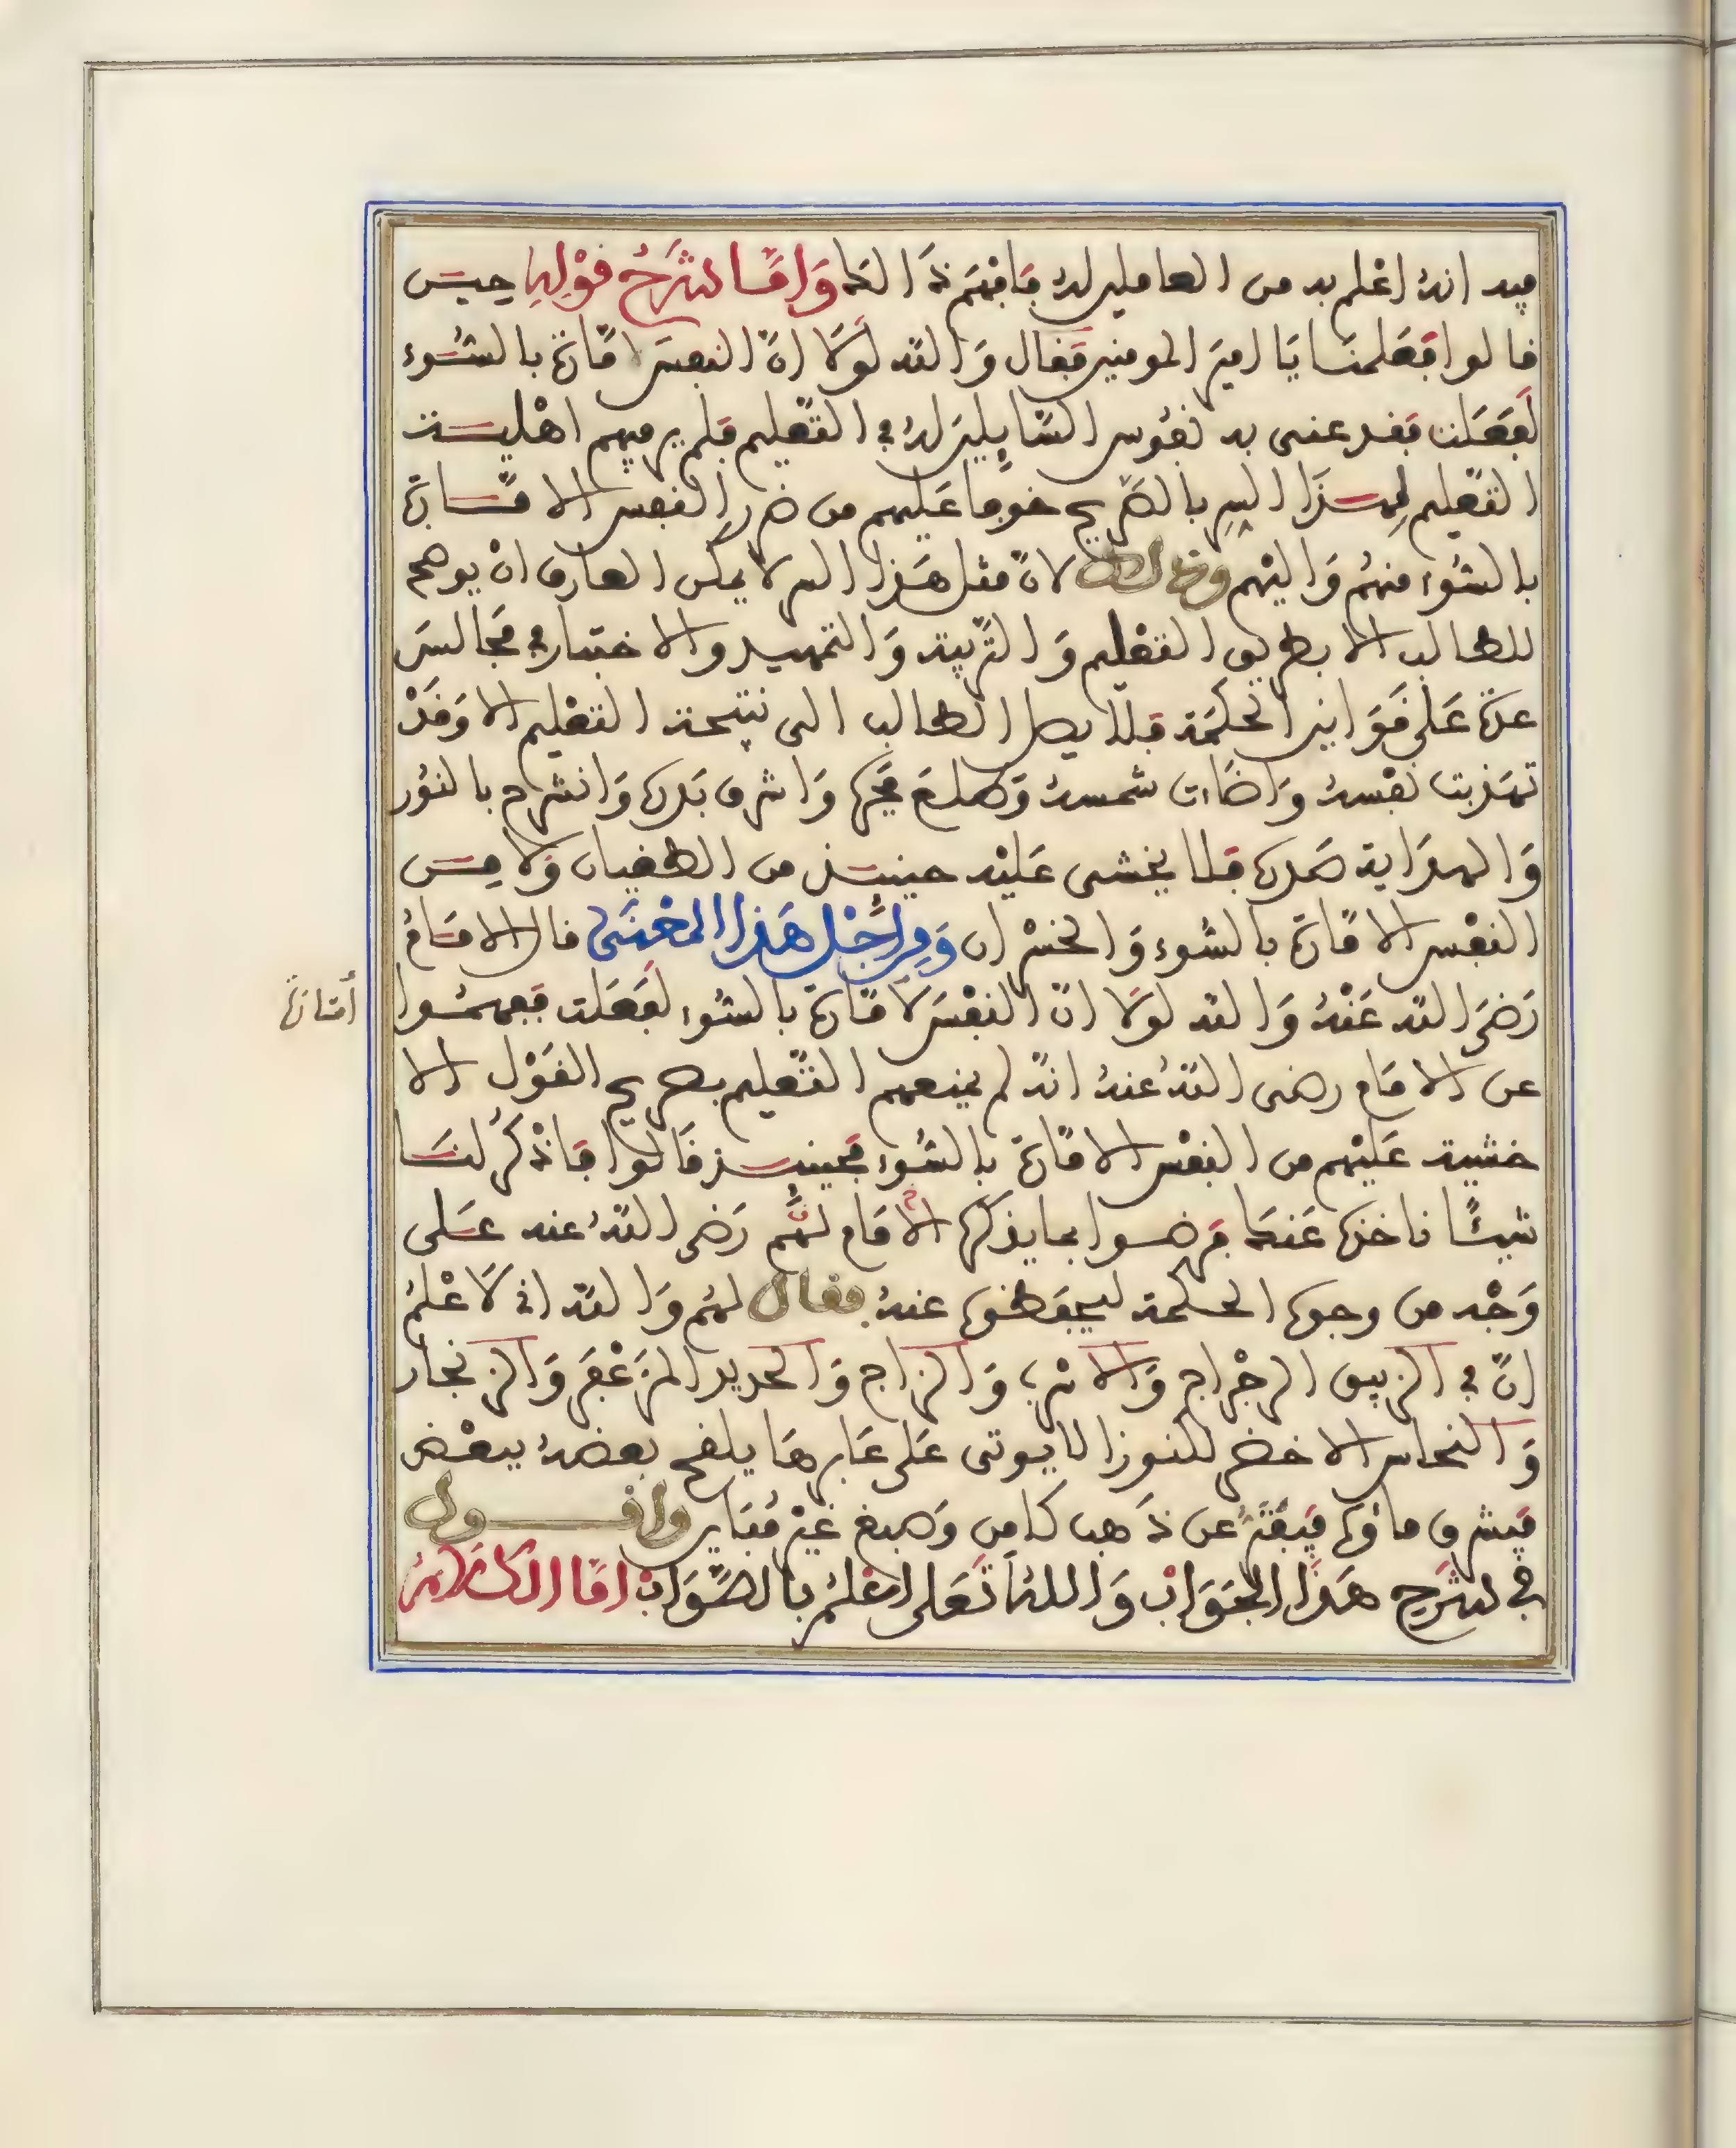 فيه انه اعلم به من العاملين له فافهم ذالك وَامَّا شَرْحُ قَوْلِهِ حين
قالوا فَعَلمنا يَا اميرَ المومنين فَقال وَالله لوَلَا انَّ النفسَ لامّارة بالسُّوء
لَفَعَلت فقد عنى به نفوس السَّايلينَ له في التّعليم فلم ير فيهم اهلية
التّعليم لِهذَا السِر بالصَّريح خوفا عَليهم من ضررِ النفس الامَّارة
بالسُّوء منهُم وَاليْهم وذالك لانّ مثل هَذا السر لا يمكن العارف انْ يوهمه
للطالب الا بطريق التعْليم وَالتَّربية وَالتمهيد والاختبار في مَجَالسَ
عدّة عَلى قَوَانين الحكمَة فلا يصل الطالب الى نتيجة التعْليم الا وَقَدْ
تهذبت نفْسهُ وَاضَاات شمسهُ وَطلعَ فجره وَاشرق بَدره وَانشرح بالنوُر
وَالهدَاية صَدره فلا يخشى عَليْه حينئذ من الطغيان وَلا من
النفْس الامّارة بالسُّوء وَالخسْران وَمِن اجْل هَذا المعْنَى قال الامَامُ
رَضيَ الله عَنْهُ وَالله لولَا انّ النفْسَ لامّارة بالسُّوء لَفَعَلت ففهموا
أمّارة
عن الامَام رضى اللهُ عنهُ انهُ لم يمنعهم التّعليم بصريح القوْل الا
خشية عَليْهم من النفْس الامّارة بالسُّوء فَحينئذ قَالوا فَاذْكرْ لنَا
شيئًا ناخذه عَنكَ فرضوا بما يذكره الامَام لهُم رَضى اللهُ عنه عَلى
وَجْه من وجوه الحكمة ليحفَظوه عنهُ فقال لهُم وَالله اني لَاعْلمُ
انّ في الزيبق الرجْراج وَالاسْرب وَالزاج وَالحديد المزَعْفَر وَالزنجار
وَالنحاس الاخضر لكنوزا لا يوتى عَلى غَابرهَا يلقح بعضهُ ببعْض
فيشرق ماؤه فيَفْتَر عن ذَهب كَامن وَصبغ غيْر مُتبَاين واقـــول
في شَرْحِ هَذَا الجَوَابْ وَاللهُ تَعَلى اعْلمُ بالصَّوَابْ امَّا الكَلَامُ